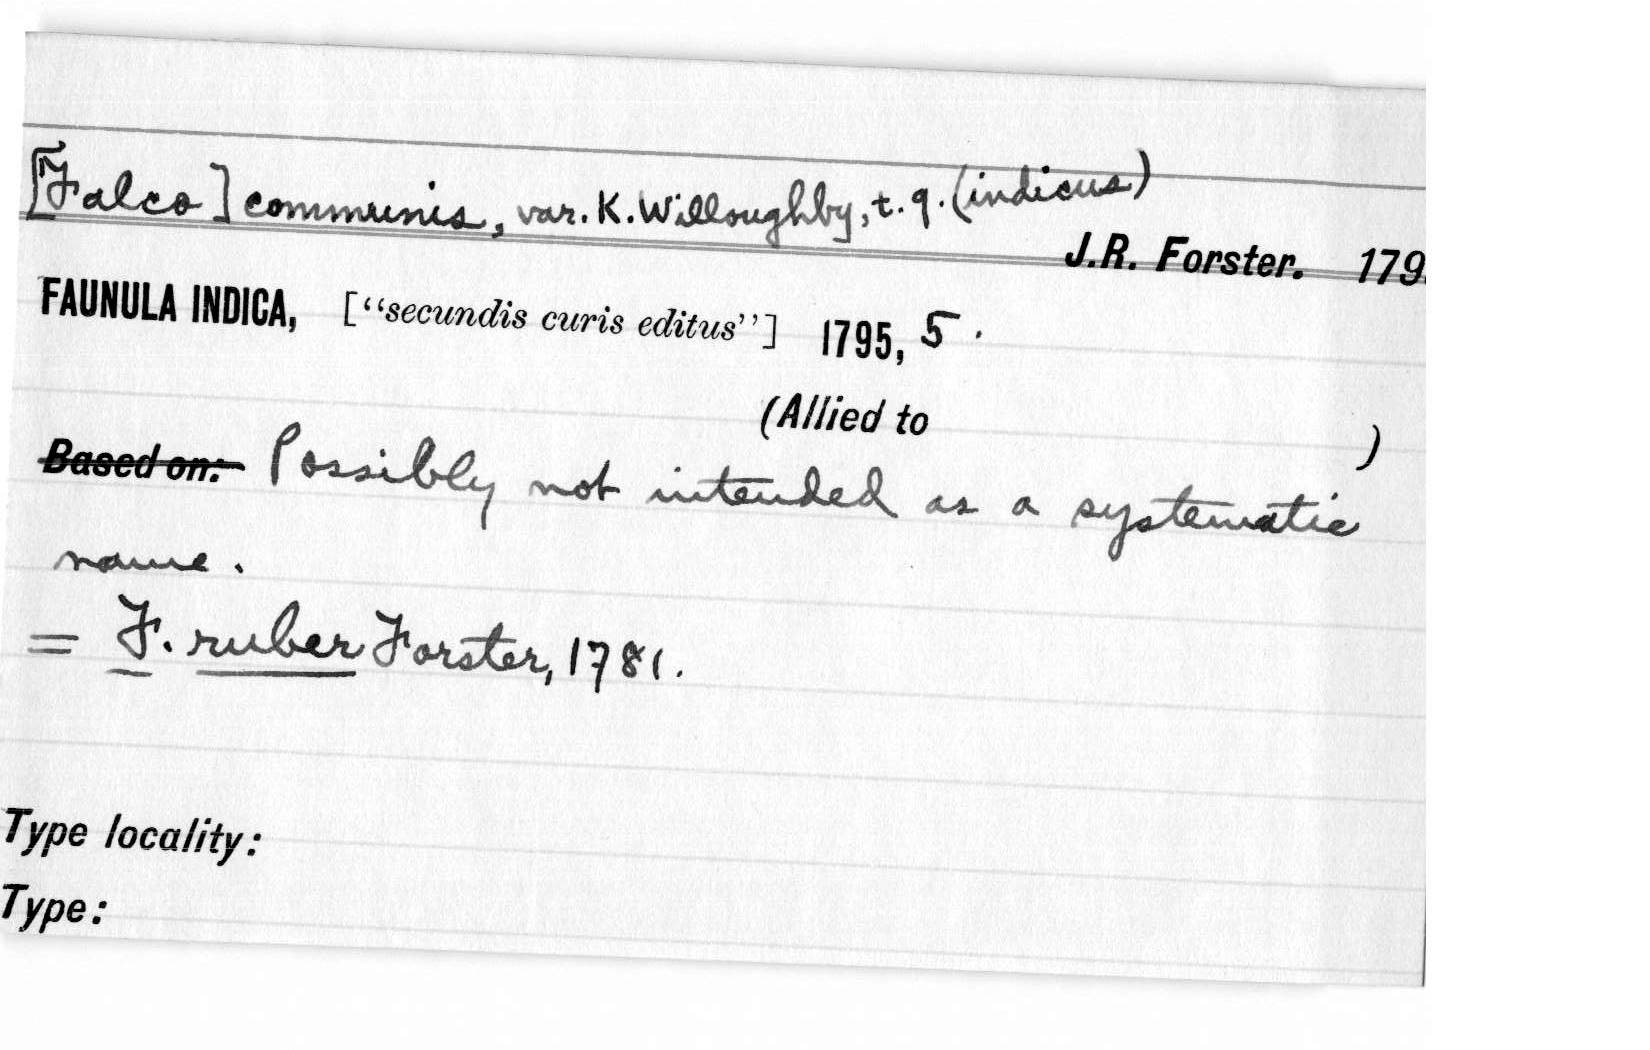 [Falco] communis, var. K. Willoughby, t. 9. (indicus)
J.R. Forster. 179
FAUNULA INDICA, ["secundis curis editus"] 1795, 5.
(Allied to )
Based on: Possibly not intended as a systematic
name.
= F. ruber Forster, 1781.
Type locality:
Type: